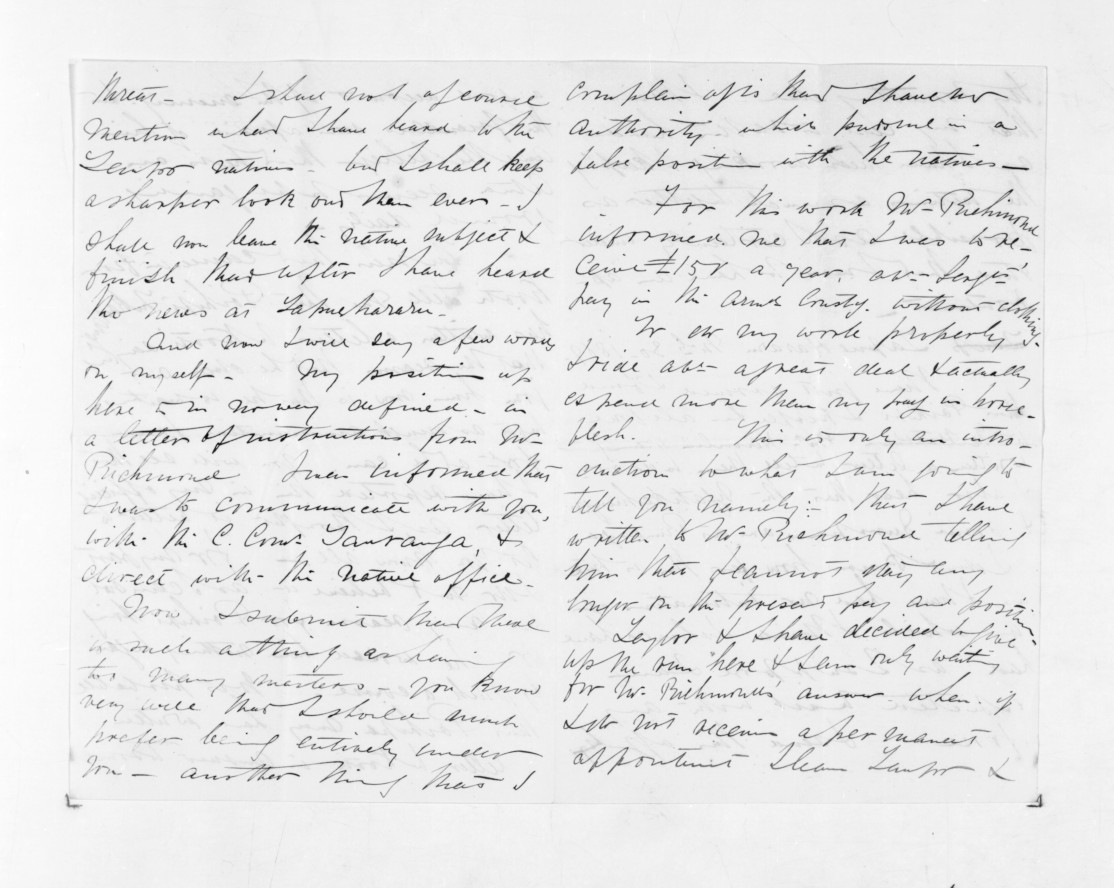 threat - I shall not of course
mention what I have heard to the
Taupo natives - but I shall keep
a sharper look out than ever - I
shall now leave the native subject &
finish that after I have heard
the news at Tapueharuru -
And now I will say a few words
on myself - My position up
here is in no way defined - in
a letter of instructions from Mr
Richmond I was informed that
I was to communicate with you,
with the C. Comr Tauranga, &
direct with the native office -
Now I submit that there
is such a thing as having
too many masters - you know
very well that I should much
prefer being entirely under
you - another thing that I
complain of is that I have no
authority - which puts me in a
false position with the natives -
For this work Mr Richmond
informed me that I was to re-
ceive £150 a year, or Sergts'
pay in the Armed Consty. without clothing -
To do my work properly I
ride about a great deal & actually
expend more than my pay in horse-
flesh. This is only an intro-
duction to what I am going to
tell you namely:- that I have
written to Mr Richmond telling
him that I cannot stay any
longer on the present pay and position -
Taylor & I have decided to give
up the run here & I am only waiting
for Mr Richmond's answer when if
I do not receive a permanent
appointment I leave Taupo &